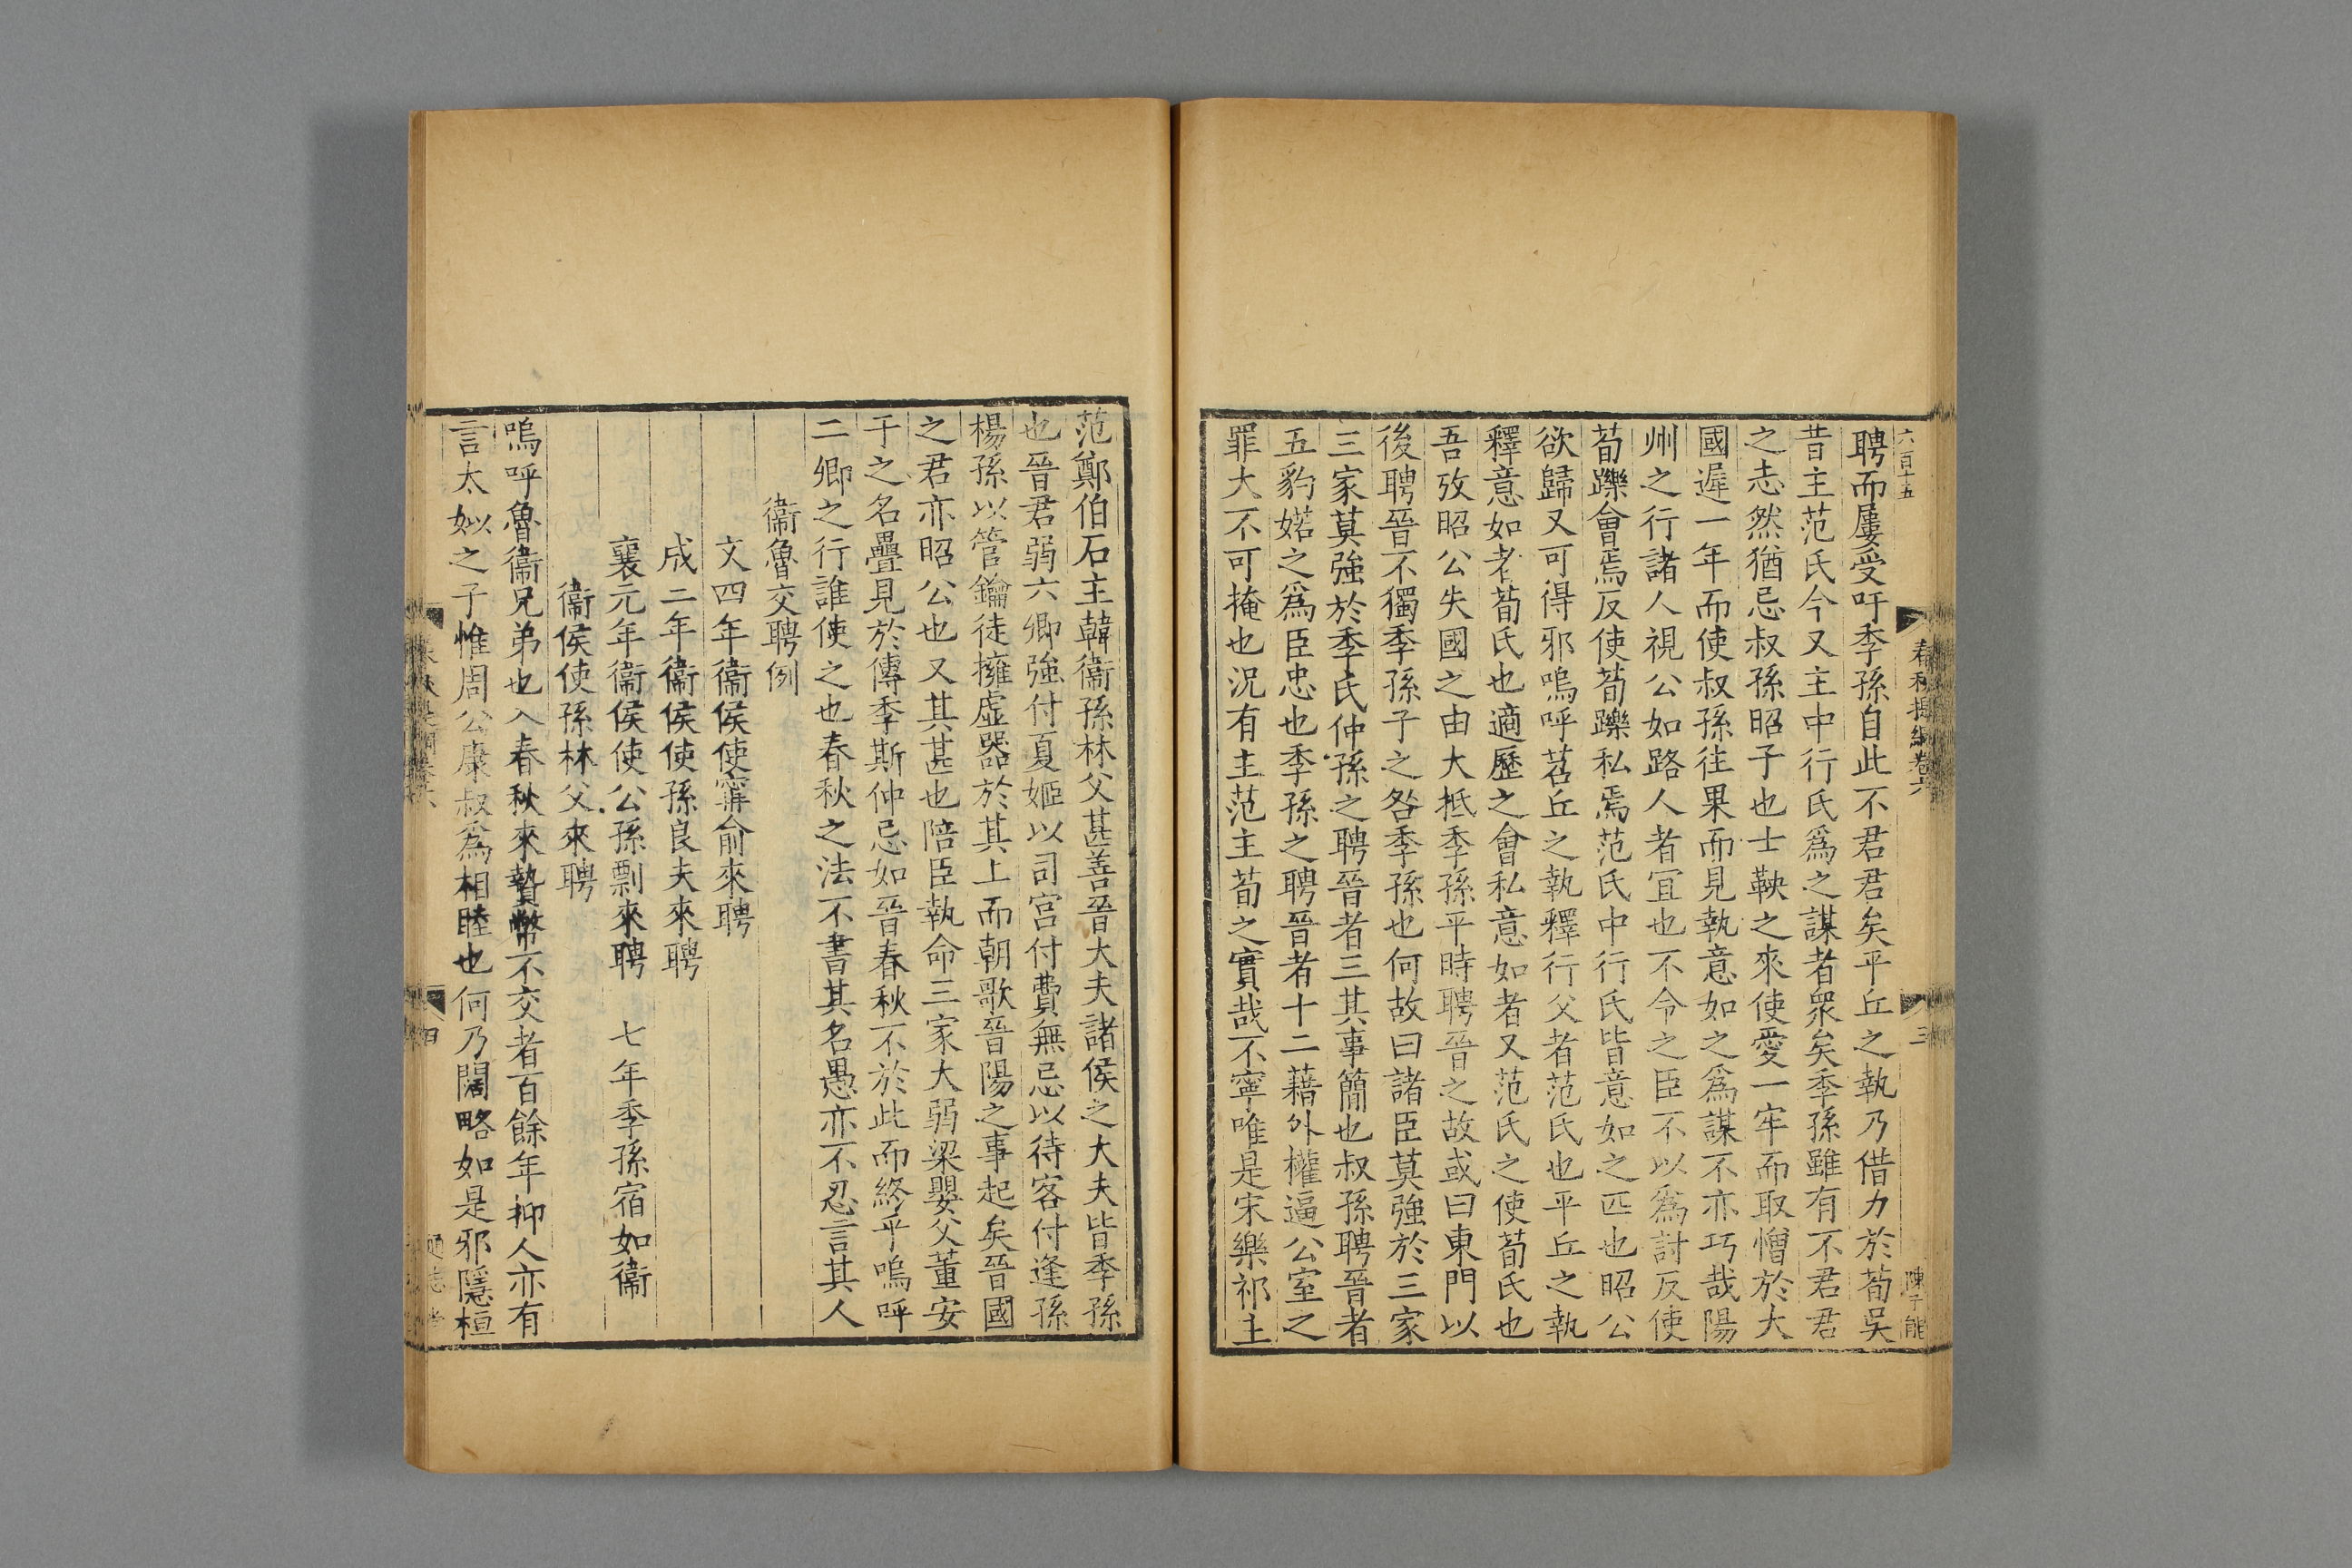 六百十五
春秋提綱卷六
三
陳子能
聘而屢受吁季孫自此不君君矣平丘之執乃借力於荀吳
昔主范氏今又主中行氏爲之謀者衆矣季孫雖有不君君
之志然猶忌叔孫昭子也士鞅之來使愛一牢而取憎於大
國遲一年而使叔孫往果而見執意如之爲謀不亦巧哉陽
州之行諸人視公如路人者宜也不令之臣不以爲討反使
荀躒會焉反使荀躒私焉范氏中行氏皆意如之匹也昭公
欲歸又可得邪嗚呼苕丘之執釋行父者范氏也平丘之執
釋意如者荀氏也適歷之會私意如者又范氏之使荀氏也
吾攷昭公失國之由大抵季孫平時聘晉之故或曰東門以
後聘晉不獨季孫子之咎季孫也何故曰諸臣莫強於三家
三家莫強於季氏仲孫之聘晉者三其事簡也叔孫聘晉者
五豹婼之爲臣忠也季孫之聘晉者十二藉外權逼公室之
罪大不可掩也況有主范主荀之實哉不寧唯是宋樂祁主
范鄭伯石主韓衞孫林父甚善晉大夫諸侯之大夫皆季孫
也晉君弱六卿強付夏姬以司宮付費無忌以待客付逢孫
楊孫以管鑰徒擁虛器於其上而朝歌晉陽之事起矣晉國
之君亦昭公也又其甚也陪臣執命三家大弱梁嬰父董安
于之名疊見於傳季斯仲忌如晉春秋不於此而終乎嗚呼
二卿之行誰使之也春秋之法不書其名愚亦不忍言其人
衞魯交聘例
文四年衞侯使甯俞來聘
成二年衞侯使孫良夫來聘
襄元年衞侯使公孫剽來聘　七年季孫宿如衞
衞侯使孫林父來聘
嗚呼魯衞兄弟也入春秋來贄幣不交者百餘年抑人亦有
言太姒之子惟周公康叔爲相睦也何乃闊略如是邪隱桓
四